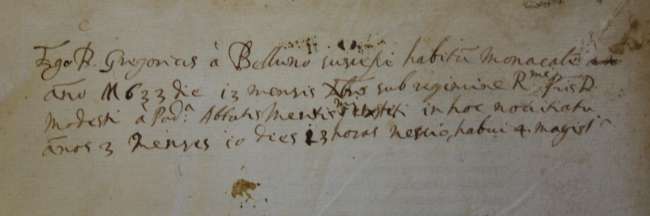 Ego D. Gregorius à Belluno suscepi habitũ monacalẽ
año 1633 die 13 mensis Xbris sub regimine R.me Pris D.
Modesti à Pad.a Abbatis Mensis in hoc novitiatu
años 3 menses 10 dies 13 horas nescio, habui 4 magist